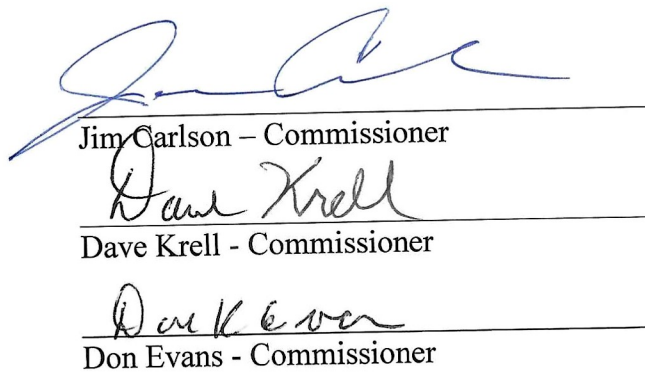 Jim Carlson – Commissioner
Dave Krell
Dave Krell - Commissioner
Don K Evans
Don Evans - Commissioner